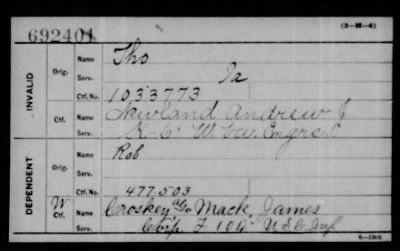 692401
(3-M-4)
INVALID
Orig. Name Tho
Serv. Ia
Ctf. No. 1033773
Ctf. Name Newland Andrew J
Serv. K. C. W. Va. Engrs.
DEPENDENT
Orig. Name Rob
Serv.
Ctf. No. 477,503
W Ctf. Name Croskey Mack, James
Serv. F 104 U S C Inf